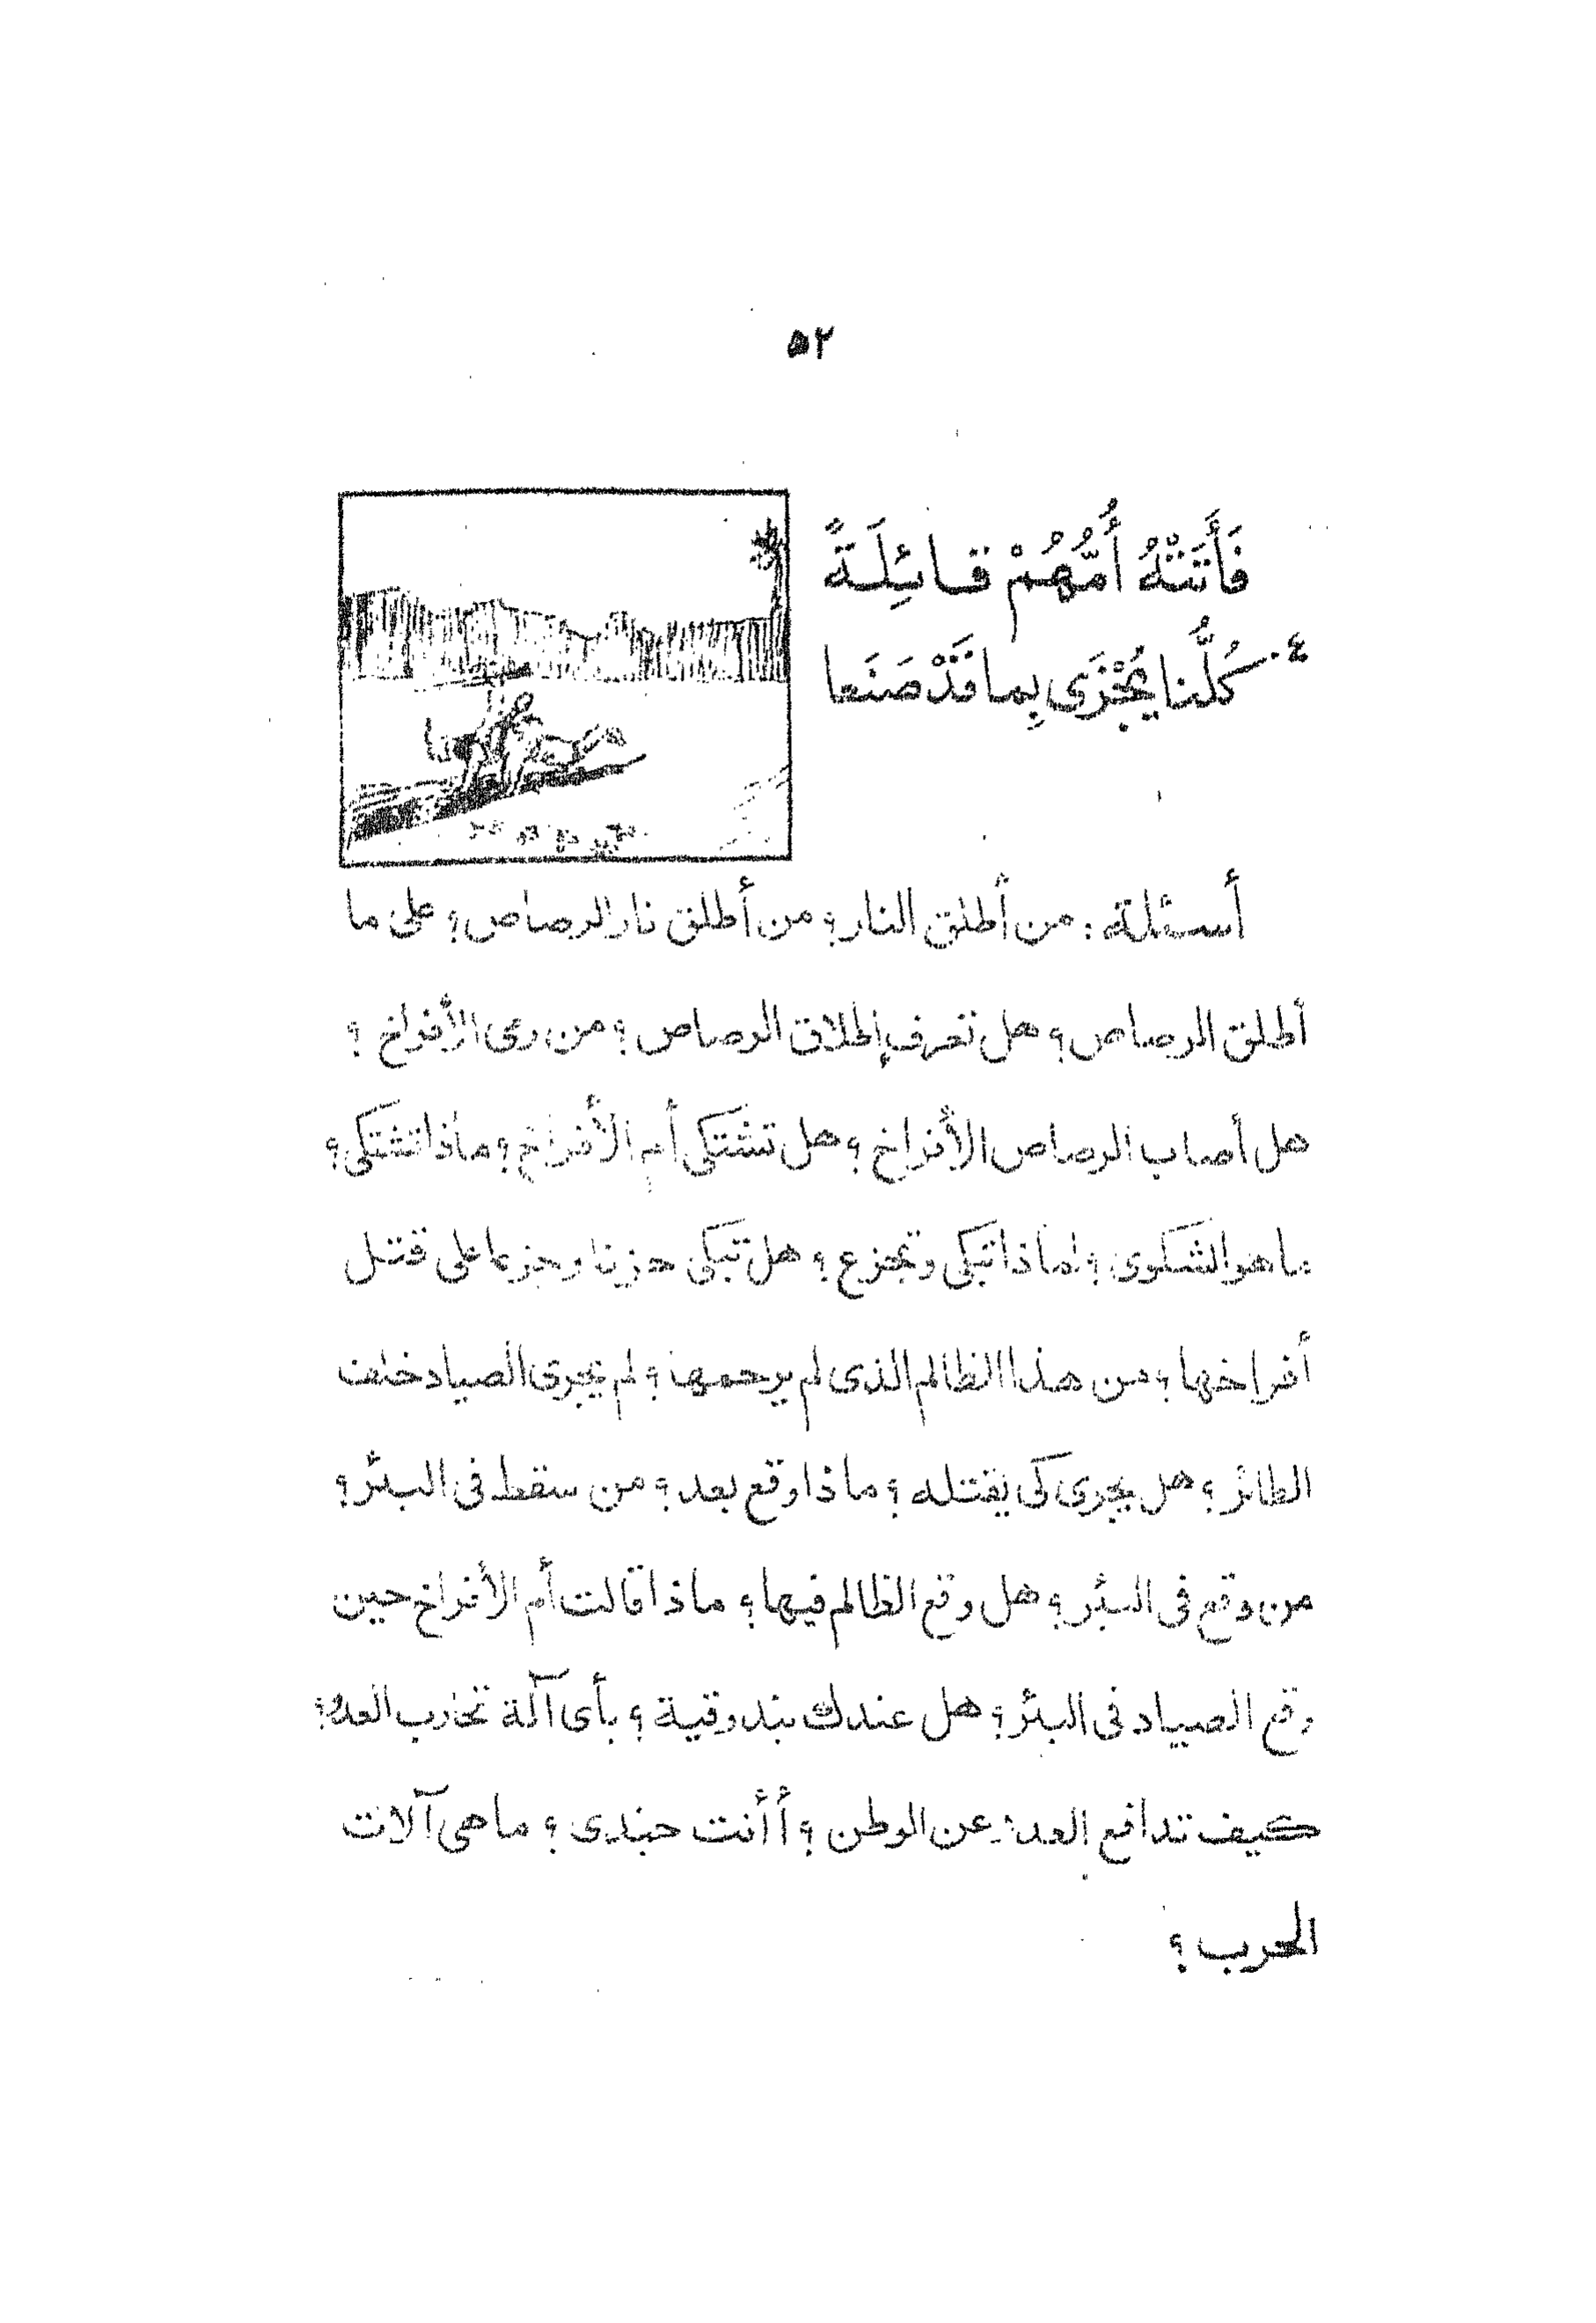 ٥٢
فَأَتَتْهُ أُمُّهُمْ قَائِلَةً
٤٠ كُلُّنا يُجْزَى بِما قَدْ صَنَعا
أسئلة : من أطلق النار؟ من أطلق نار الرصاص؟ على ما
أطلق الرصاص؟ هل تعرف إطلاق الرصاص؟ من رمى الأفراخ ؟
هل أصاب الرصاص الأفراخ ؟ هل تشتكى أم الأفراخ؟ ماذا تشتكى؟
ما هو الشكوى ؟ لماذا تبكى وتجزع ؟ هل تبكى حزنا وجزعا على قتل
أفراخها؟ من هذا الظالم الذى لم يرحمها؟ لم يجرى الصياد خلف
الطائر؟ هل يجرى كى يقتله ؟ ماذا وقع بعد؟ من سقط فى البئر؟
من وقع فى البئر؟ هل وقع الظالم فيها؟ ماذا قالت أم الأفراخ حين
وقع الصياد فى البئر؟ هل عندك بندوقية ؟ بأى آلة تحارب العدو؟
كيف تدافع العدو عن الوطن ؟ أ أنت جندى ؟ ما هى آلات
الحرب ؟